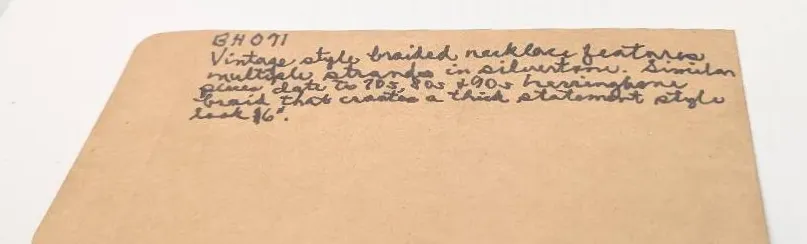 BH071
Vintage style braided necklace features
multiple strands in silvertone. Similar
pieces date to 70s, 80s & 90s herringbone
braid that creates a thick statement style
look 16".